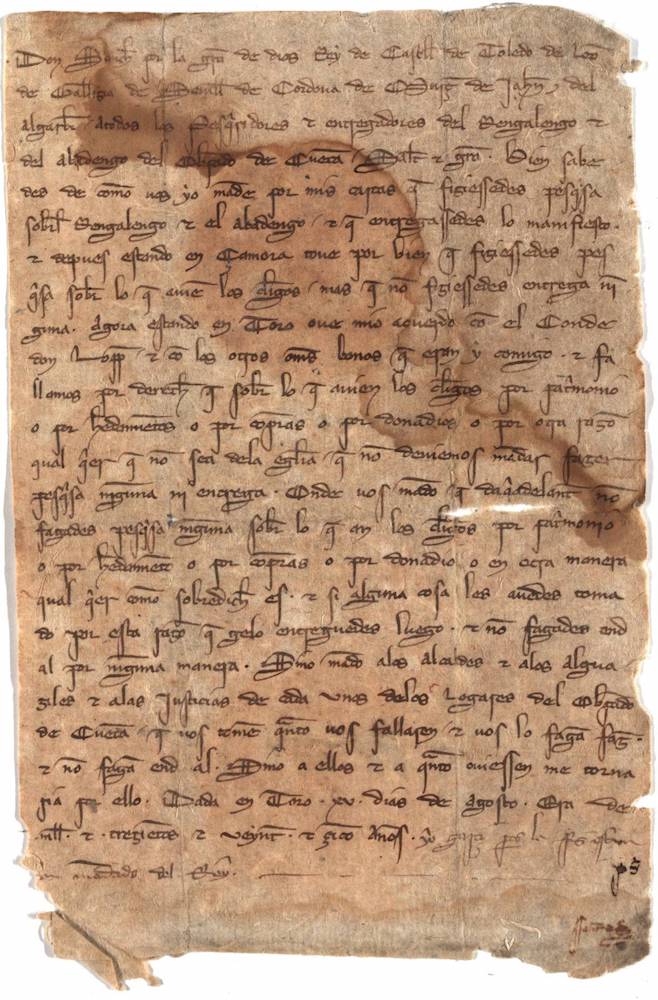 Don Sancho por la gra de dios Rey de Castiella de Toledo de Leon
de Gallizia de Seuilla de Cordoua de Murçia de Jahen del
algarbe atodos los Pesqridores τ entregadores del Rengalengo τ
del abadengo del Obpado de Cuenca Salut τ gra. Bien sabe
des de como uos yo mande por mis cartas q fiziessedes pesqisa
sobrel Rengalengo τ el abadengo τ q entregassedes lo manifiesto.
τ depues estando en Çamora toue por bien q fiziessedes pes
qisa sobre lo q auien los cligos mas q no fiziessedes entrega ni
guna. Agora estando en Toro oue mio acuerdo co el Conde
don Lopp τ co los otros oms bonos q eran y comigo. τ fa
llamos por derecho q sobre lo q auien los cligos por patimonio
o por hedamietos o por copras o por donadios o por otra razo
qual qier q no sea dela eglia q no deuiemos madar fazer
pesqisa ninguna ni entrega. Onde uos mado q daqiadelant no
fagades pesqisa ninguna sobre lo q an los cligos por patimonio
o por hedamieto o por copras o por donadio o en otra manera
qual qier como sobredicho es. τ si alguna cosa les auedes toma
do por esta razo q gelo entreguedes luego. τ no fagades end
al por ninguna manera. Sino mado alos alcaldes τ alos algua
ziles τ alas Justicias de cada unos delos Logares del Obpado
de Cuenca q uos tome qnto uos fallaren τ uos lo faga faz.
τ no faga end al. Sino a ellos τ a qnto ouiessen me torna
ria por ello. Dada en Toro. xv. dias de Agosto. Era de
mill. τ. trezietos τ veynt. τ çinco Anos. yo
mandado del Rey.